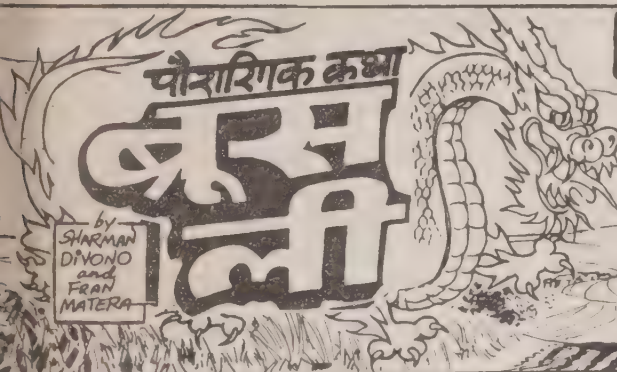 पौराणिक कथा
ब्रूस
ली
by
SHARMAN
DiVONO
and
FRAN
MATERA